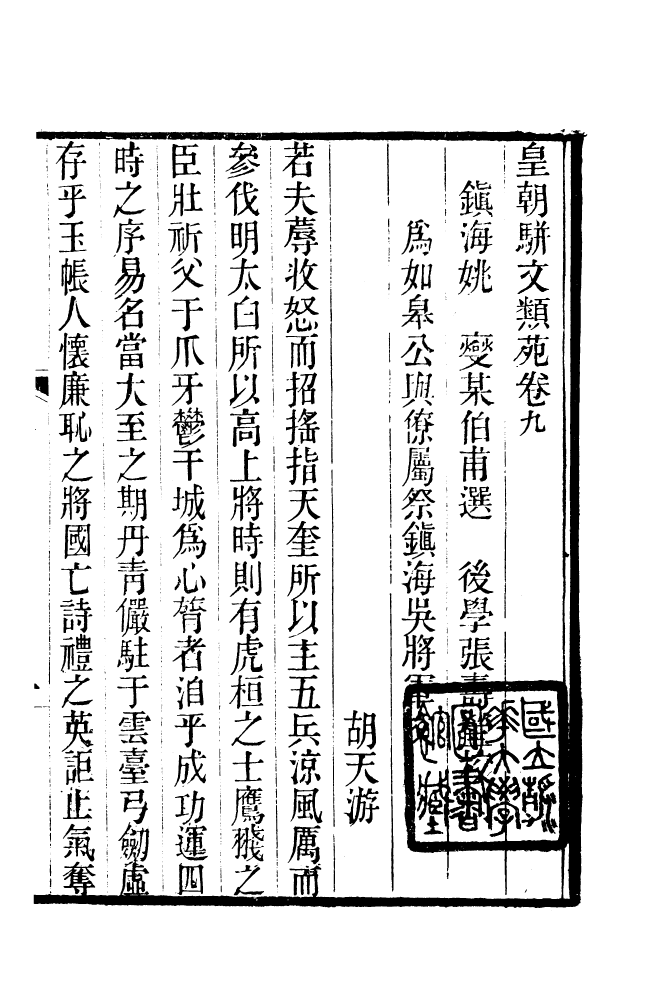 皇朝駢文類苑卷九
鎮海姚　燮某伯甫選　後學張壽
爲如臯公與僚屬祭鎮海吳將軍
胡天游
若夫蓐收怒而招搖指天奎所以主五兵涼風厲而
參伐明太白所以高上將時則有虎桓之士鷹之
臣壯祈父于爪牙鬱干城爲心膂者洎乎成功運四
時之序易名當大至之期丹靑儼駐于雲臺弓劒虛
存乎玉帳人懷廉恥之將國亡詩禮之英詎止氣奪
國立
大學
圖書
館藏